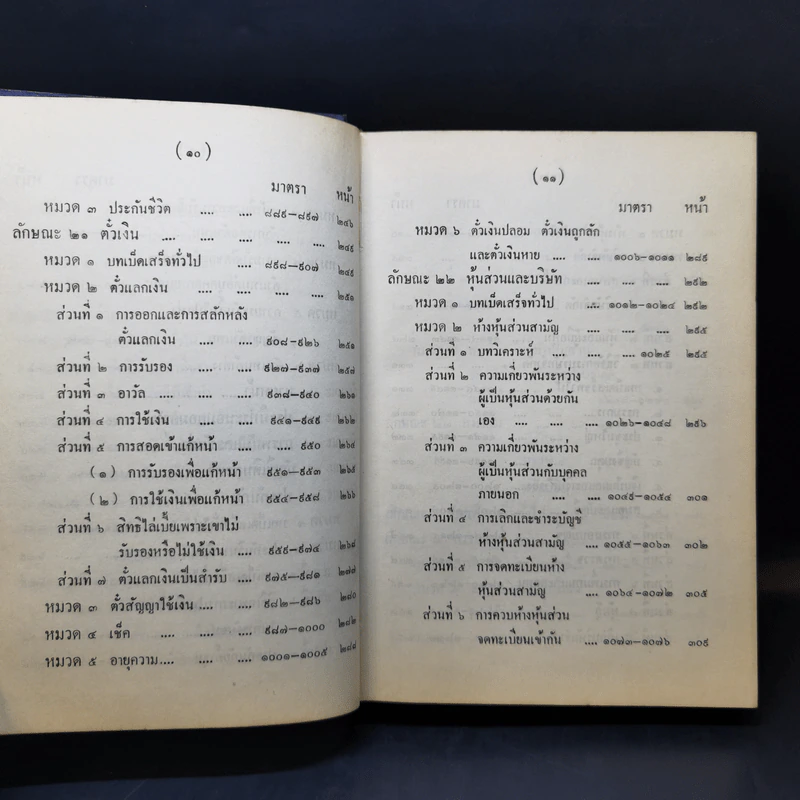 (๑๐)
มาตรา หน้า
หมวด ๓ ประกันชีวิต .... .... ๘๘๙-๘๙๗ ๒๔๖
ลักษณะ ๒๑ ตั๋วเงิน .... .... .... .... .... ๒๔๙
หมวด ๑ บทเบ็ดเสร็จทั่วไป .... ๘๙๘-๙๐๗ ๒๔๙
หมวด ๒ ตั๋วแลกเงิน .... .... .... .... ๒๕๑
ส่วนที่ ๑ การออกและการสลักหลัง
ตั๋วแลกเงิน .... .... ๙๐๘-๙๒๖ ๒๕๑
ส่วนที่ ๒ การรับรอง .... .... ๙๒๗-๙๓๗ ๒๕๗
ส่วนที่ ๓ อาวัล .... .... .... ๙๓๘-๙๔๐ ๒๖๑
ส่วนที่ ๔ การใช้เงิน .... .... ๙๔๑-๙๔๙ ๒๖๒
ส่วนที่ ๕ การสอดเข้าแก้หน้า .... .... ๙๕๐ ๒๖๔
(๑) การรับรองเพื่อแก้หน้า ๙๕๑-๙๕๓ ๒๖๕
(๒) การใช้เงินเพื่อแก้หน้า ๙๕๔-๙๕๘ ๒๖๖
ส่วนที่ ๖ สิทธิไล่เบี้ยเพราะเขาไม่
รับรองหรือไม่ใช้เงิน .... ๙๕๙-๙๗๔ ๒๖๘
ส่วนที่ ๗ ตั๋วแลกเงินเป็นสำรับ .... ๙๗๕-๙๘๑ ๒๗๗
หมวด ๓ ตั๋วสัญญาใช้เงิน .... .... ๙๘๒-๙๘๖ ๒๘๐
หมวด ๔ เช็ค .... .... .... ๙๘๗-๑๐๐๐ ๒๘๒
หมวด ๕ อายุความ.... .... .... ๑๐๐๑-๑๐๐๕ ๒๘๘
(๑๑)
มาตรา หน้า
หมวด ๖ ตั๋วเงินปลอม ตั๋วเงินถูกลัก
และตั๋วเงินหาย .... .... ๑๐๐๖-๑๐๑๑ ๒๘๙
ลักษณะ ๒๒ หุ้นส่วนและบริษัท .... .... .... ๒๙๒
หมวด ๑ บทเบ็ดเสร็จทั่วไป .... ๑๐๑๒-๑๐๒๔ ๒๙๒
หมวด ๒ ห้างหุ้นส่วนสามัญ .... .... .... ๒๙๕
ส่วนที่ ๑ บทวิเคราะห์ .... .... .... ๑๐๒๕ ๒๙๕
ส่วนที่ ๒ ความเกี่ยวพันระหว่าง
ผู้เป็นหุ้นส่วนด้วยกัน
เอง .... .... .... ๑๐๒๖-๑๐๔๘ ๒๙๖
ส่วนที่ ๓ ความเกี่ยวพันระหว่าง
ผู้เป็นหุ้นส่วนกับบุคคล
ภายนอก .... .... ๑๐๔๙-๑๐๕๔ ๓๐๑
ส่วนที่ ๔ การเลิกและชำระบัญชี
ห้างหุ้นส่วนสามัญ .... ๑๐๕๕-๑๐๖๓ ๓๐๒
ส่วนที่ ๕ การจดทะเบียนห้าง
หุ้นส่วนสามัญ .... ๑๐๖๔-๑๐๗๒ ๓๐๕
ส่วนที่ ๖ การควบห้างหุ้นส่วน
จดทะเบียนเข้ากัน .... ๑๐๗๓-๑๐๗๖ ๓๐๙